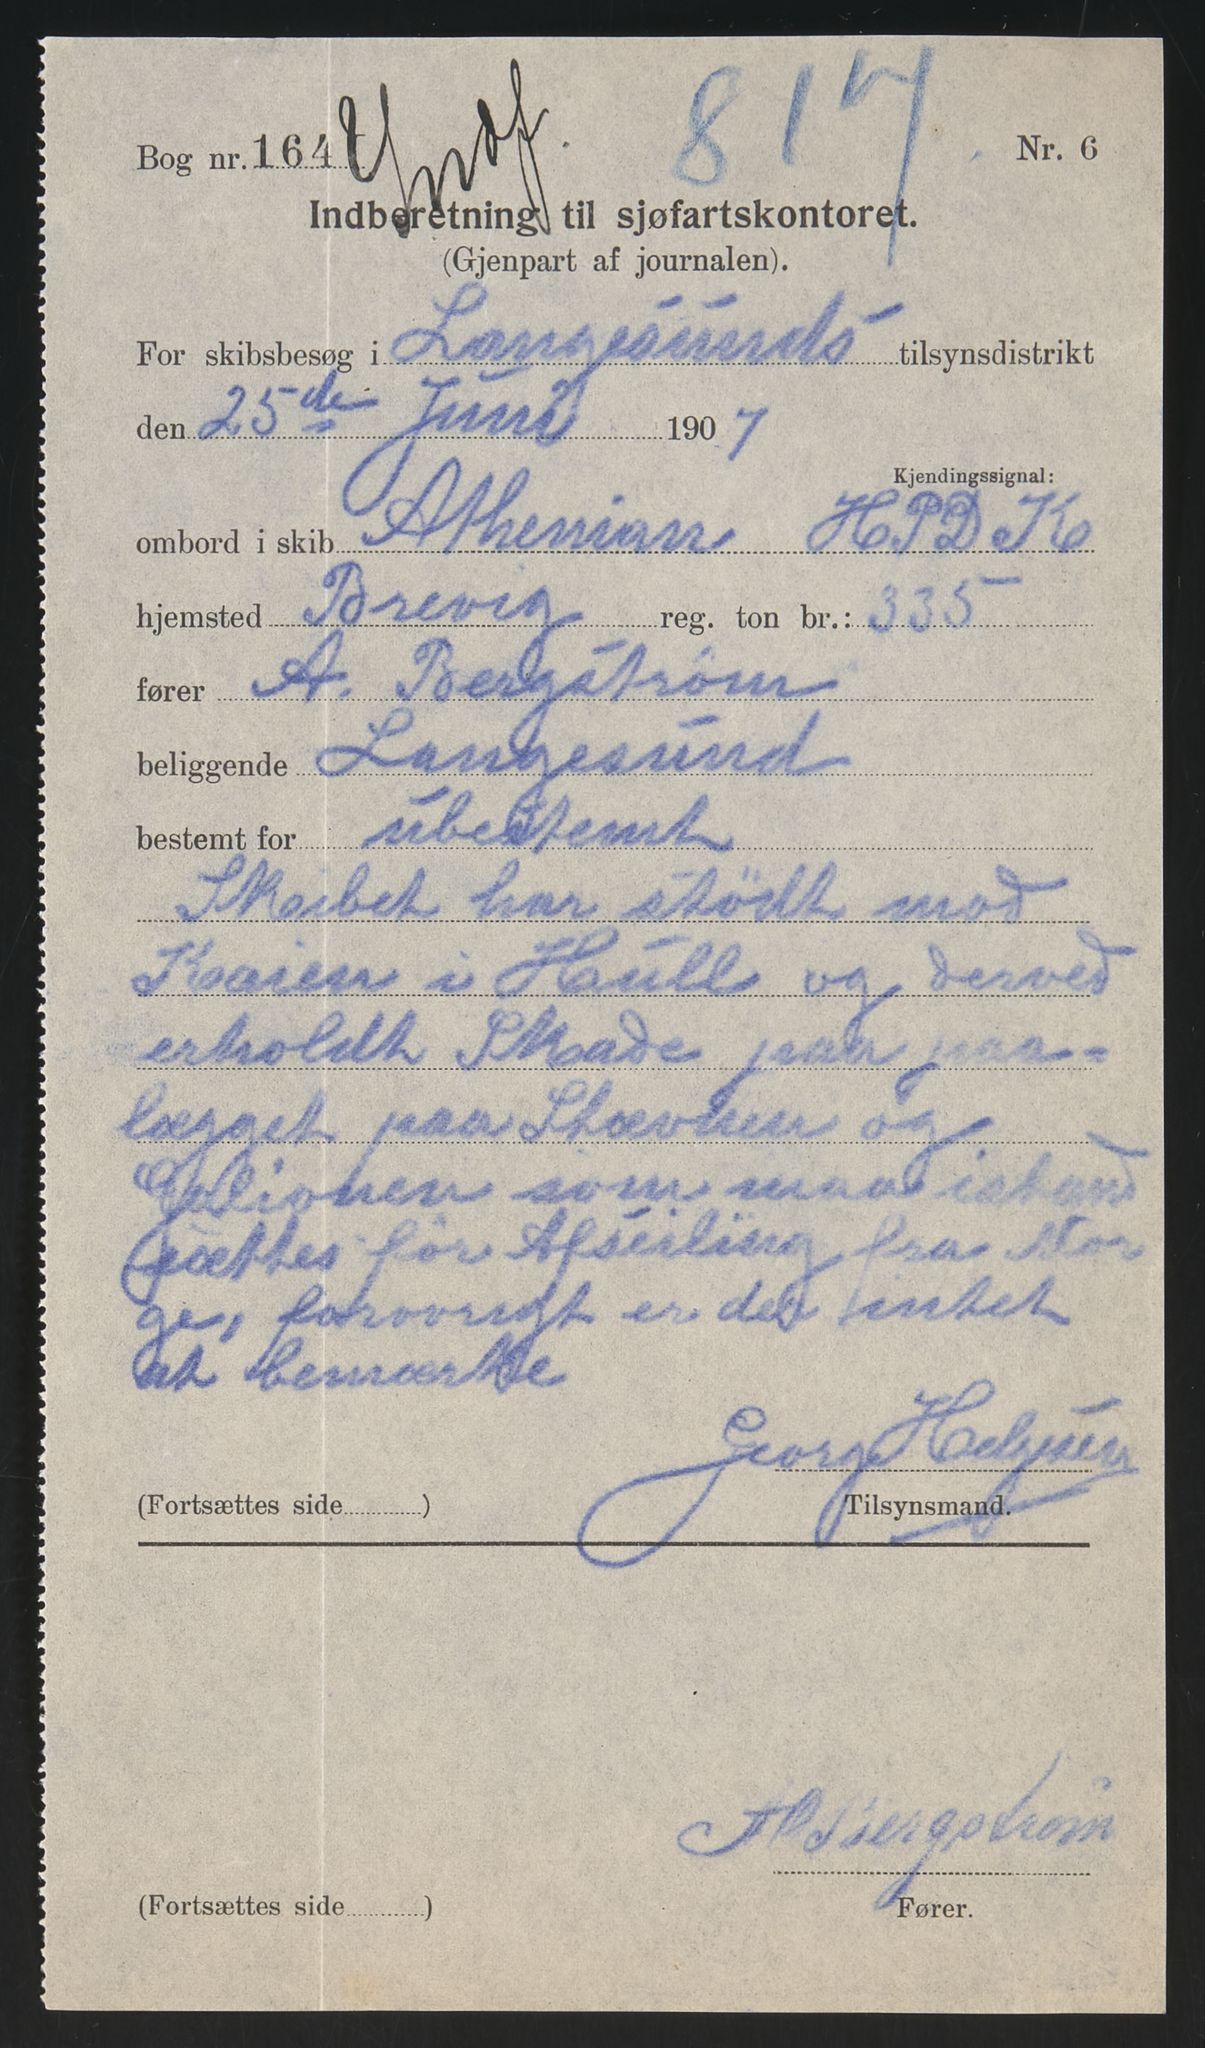 817
Bog nr. 164 Nr. 6
Indberetning til sjøfartskontoret.
(Gjenpart af journalen).
For skibsbesøg i Langesunds tilsynsdistrikt
den 25de Juni 1907
Kjendingssignal:
ombord i skib Athenian HPDK
hjemsted Brevig reg. ton br.: 335
fører A. Bergström
beliggende Langesund
bestemt for ubestemt
Skibet har stödt mod
Kaien i Hull og derved
erholdt Skade paa paa-
lægget paa Stævnen og
Galionen som maa istand
sættes för Afseiling fra Nor
ge, forövrigt er der intet
at bemærke
Georg Helgesen
(Fortsættes side ) Tilsynsmand.
A Bergström
(Fortsættes side ) Fører.